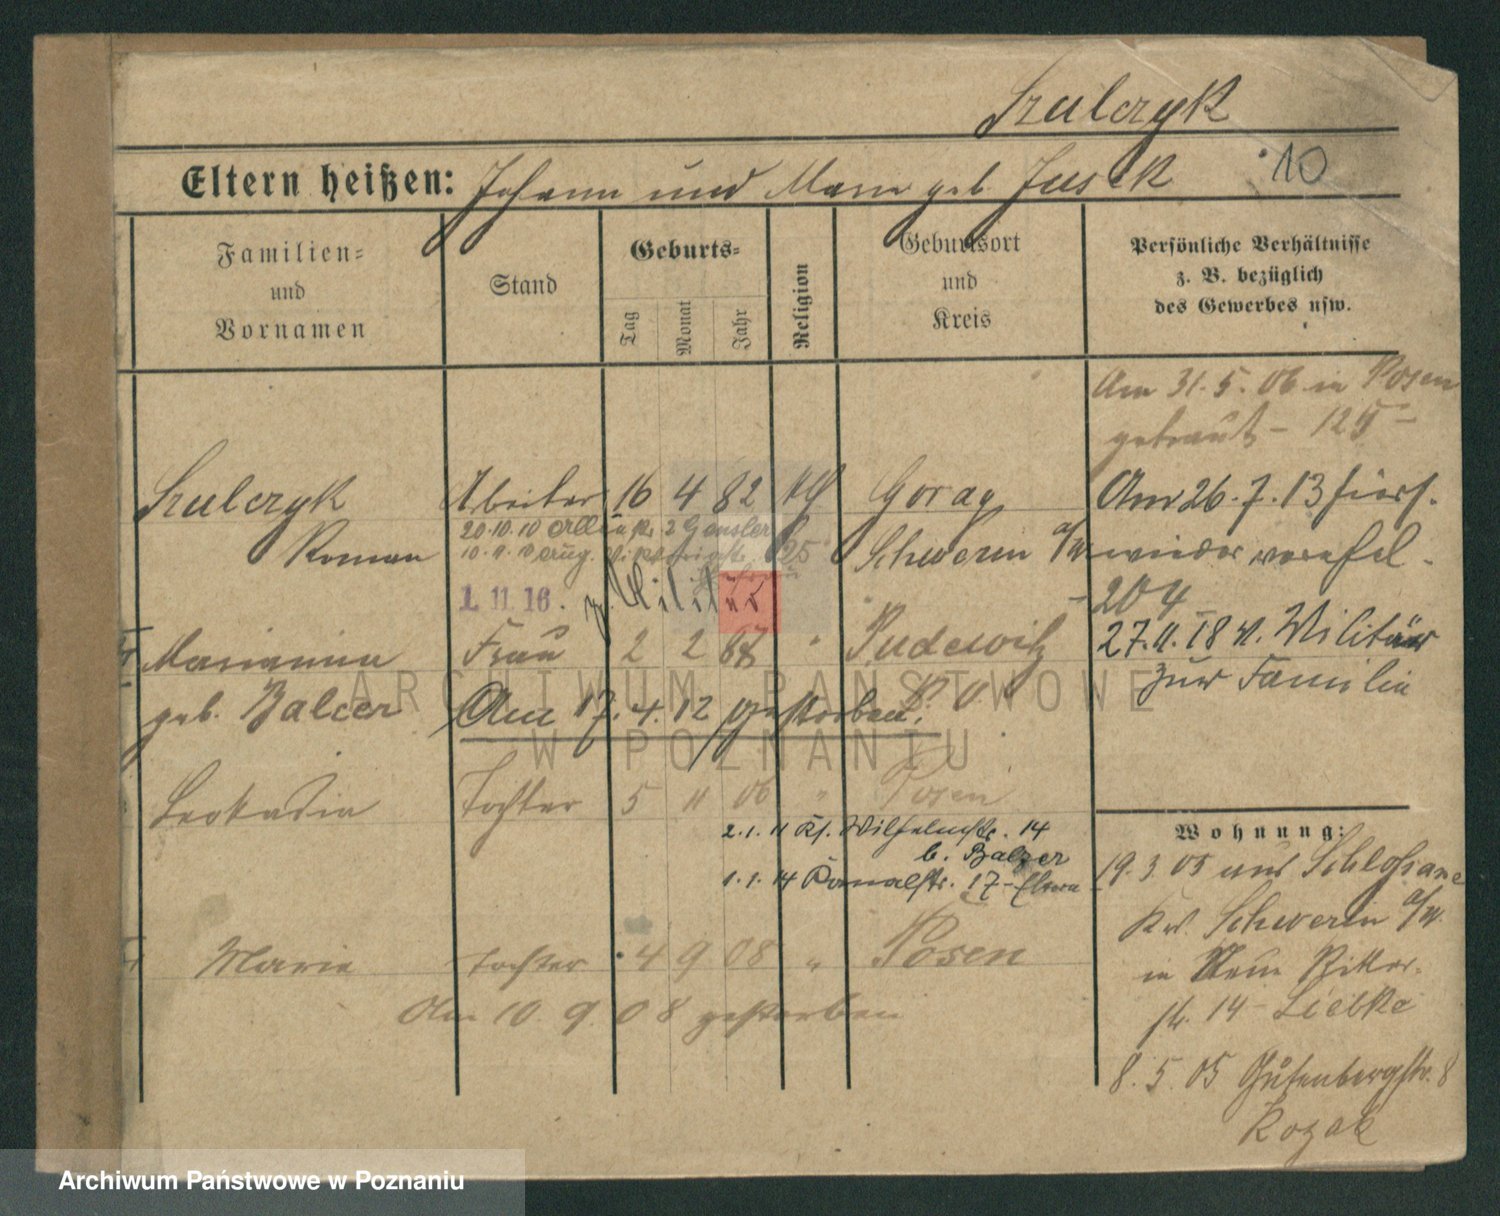 Szulczyk
Eltern heißen: Johann und Marie geb. Jusek 10
Familien- und Vornamen
Stand
Geburts-
Tag
Monat
Jahr
Religion
Geburtsort und Kreis
Persönliche Verhältnisse
z. B. bezüglich
des Gewerbes usw.
Am 31.5.06 in Posen
getraut
Szulczyk Arbeiter 16 4 82 Goray
Roman Schwerin a/W
20.10.10
10.11.10
1. 11. 16. z. Militär
Am 26.7.13 hiers.
wieder verehel.
204
27.11.18 v. Militär
zur Familie
Marianna Frau 2 2 " Pudewitz
geb. Balcer P. O.
Am 17.4.12 gestorben.
Leokadia Tochter 5 11 06 " Posen
2.1.11 Kl. Wilhelmstr. 14
b. Balzer
1.1.14 Kanalstr. 17 - Eltern
Marie Tochter 4 9 08 " Posen
Am 10.9.08 gestorben
Wohnung:
19.3.05 aus
Kr. Schwerin a/W.
in Neue Ritter-
str. 14 - Liebke
8.5.05 Gutenbergstr. 8
Kozak
ARCHIWUM PAŃSTWOWE
W POZNANIU
Archiwum Państwowe w Poznaniu